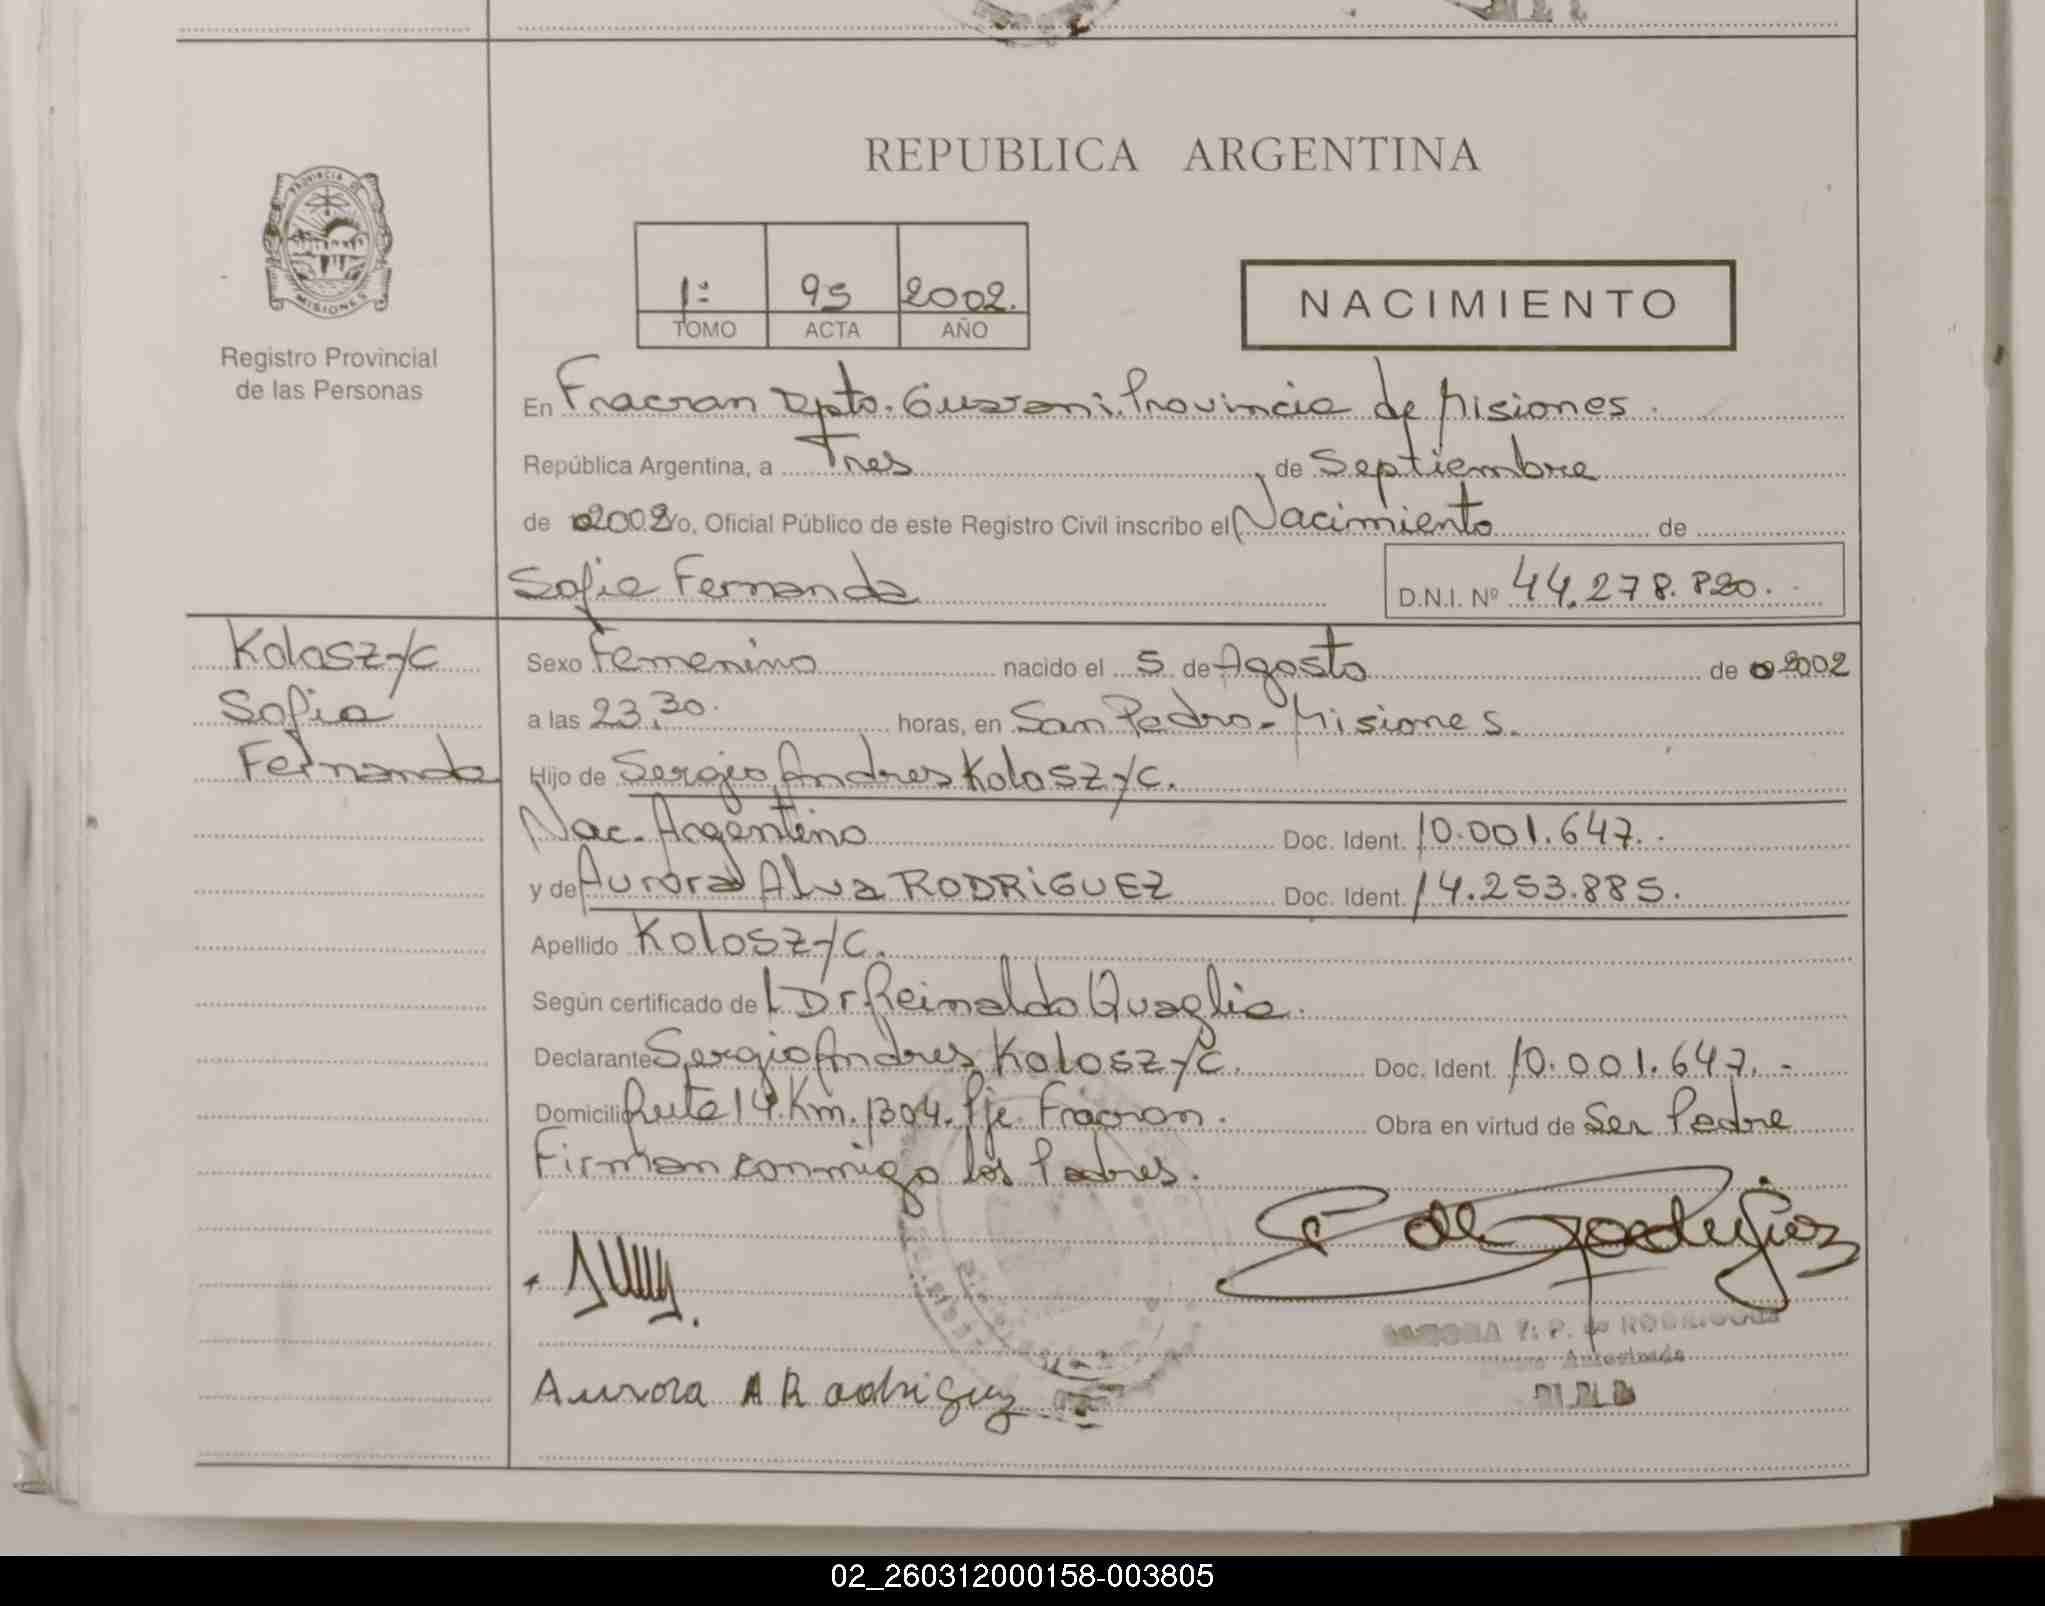 REPUBLICA ARGENTINA
PROVINCIA DE
MISIONES
Registro Provincial
de las Personas
1º 95 2002.
TOMO ACTA AÑO
NACIMIENTO
En Fracran Dpto. Guarani. Provincia de Misiones.
República Argentina, a Tres de Septiembre
de 2002 Yo, Oficial Público de este Registro Civil inscribo el Nacimiento de
Sofia Fernanda D.N.I. Nº 44.278.820.
Kolaszyc
Sofia
Fernanda
Sexo Femenino nacido el 5 de Agosto de 2002
a las 23,30. horas, en San Pedro - Misiones.
Hijo de Sergio Andres Kolaszyc.
Nac. Argentino Doc. Ident. 10.001.647.
y de Aurora Alva RODRiGUEZ Doc. Ident. 14.253.885.
Apellido Kolaszyc.
Según certificado de l Dr. Reinaldo Quaglia.
Declarante Sergio Andres Kolaszyc. Doc. Ident. 10.001.647.-
Domicilio Ruta 14. Km. 1304. Pje. Fracran. Obra en virtud de Ser Padre
Firman conmigo los Padres.
Y. P. de RODRIGUEZ
Autorizada
Aurora A Rodriguez
02_260312000158-003805